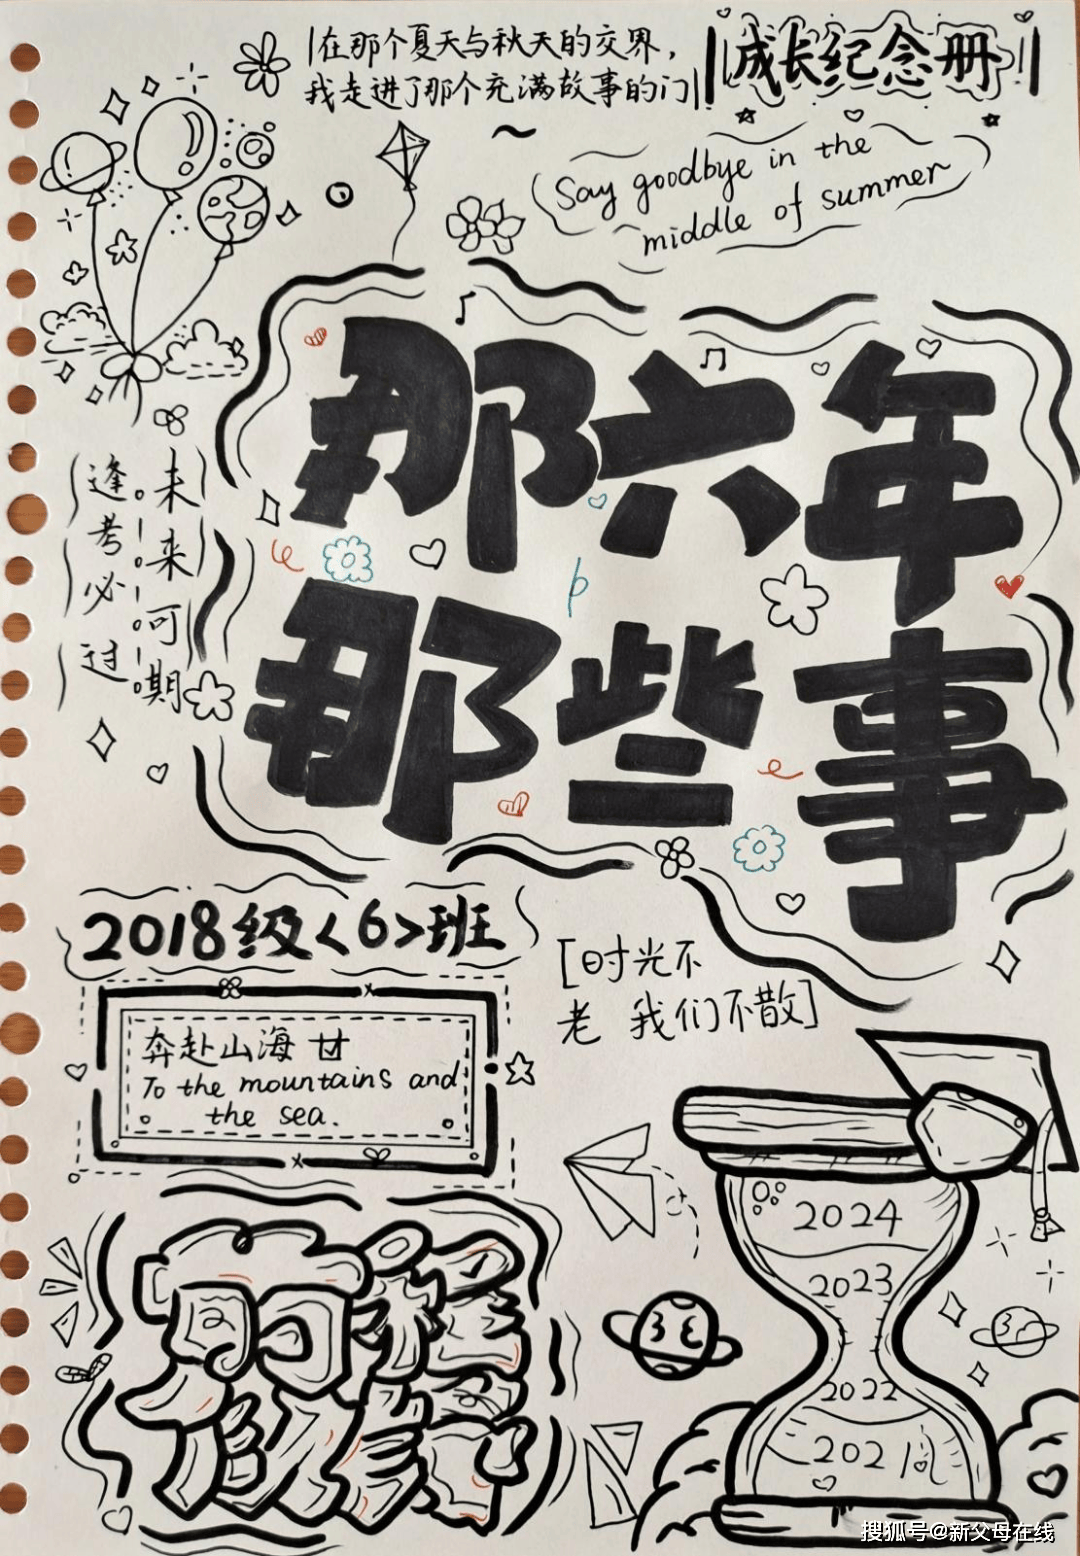 在那个夏天与秋天的交界，
我走进了那个充满故事的门
成长纪念册
Say goodbye in the
middle of summer
那六年
那些事
未来可期
逢考必过
2018级<6>班
[时光不
老 我们不散]
奔赴山海
To the mountains and
the sea.
前程
似锦
2024
2023
2022
2021
搜狐号@新父母在线